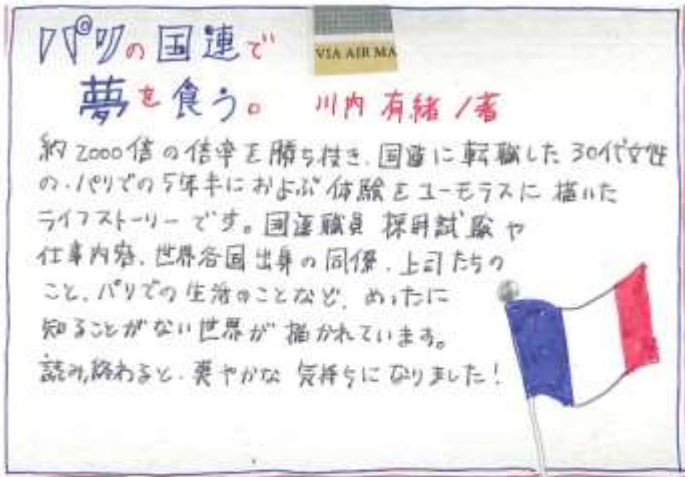 パリの国連で
VIA AIR MA
夢を食う。 川内 有緒 / 著
約2000倍の倍率を勝ち抜き、国連に転職した30代女性
の、パリでの5年半におよぶ体験をユーモラスに描いた
ライフストーリーです。国連職員採用試験や
仕事内容、世界各国出身の同僚、上司たちの
こと、パリでの生活のことなど、めったに
知ることがない世界が描かれています。
読み終わると、爽やかな気持ちになりました!